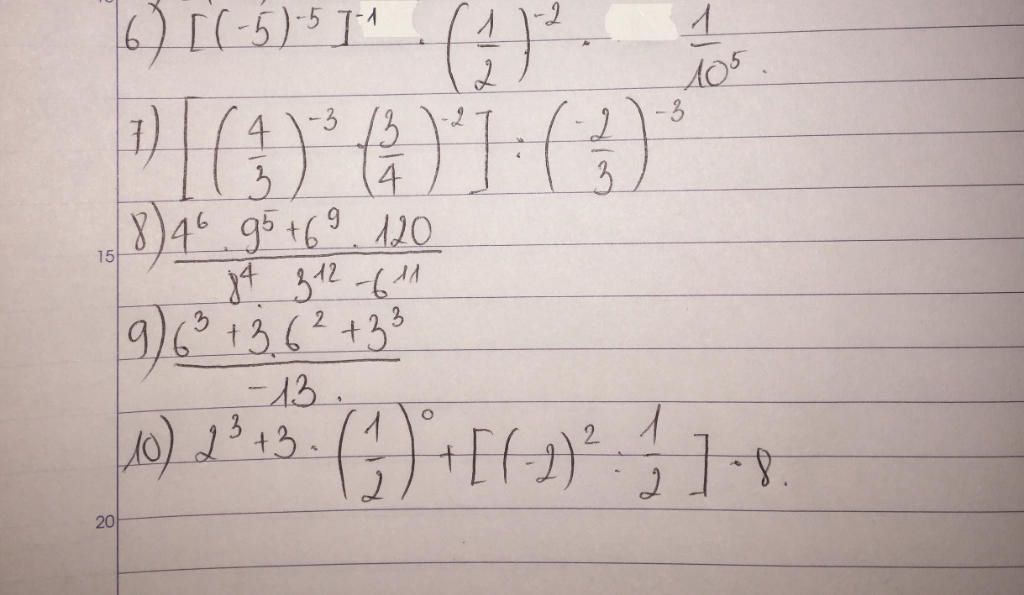 6) [(-5)^-5]^-1 . (1/2)^-2 . 1/10^5.
7) [(4/3)^-3 . (3/4)^-2] : (-2/3)^-3
15 8) (4^6 . 9^5 + 6^9 . 120)/(8^4 . 3^12 - 6^11)
9) (6^3 + 3.6^2 + 3^3)/(-13).
10) 2^3 + 3 . (1/2)^0 + [(-2)^2 : 1/2] . 8.
20